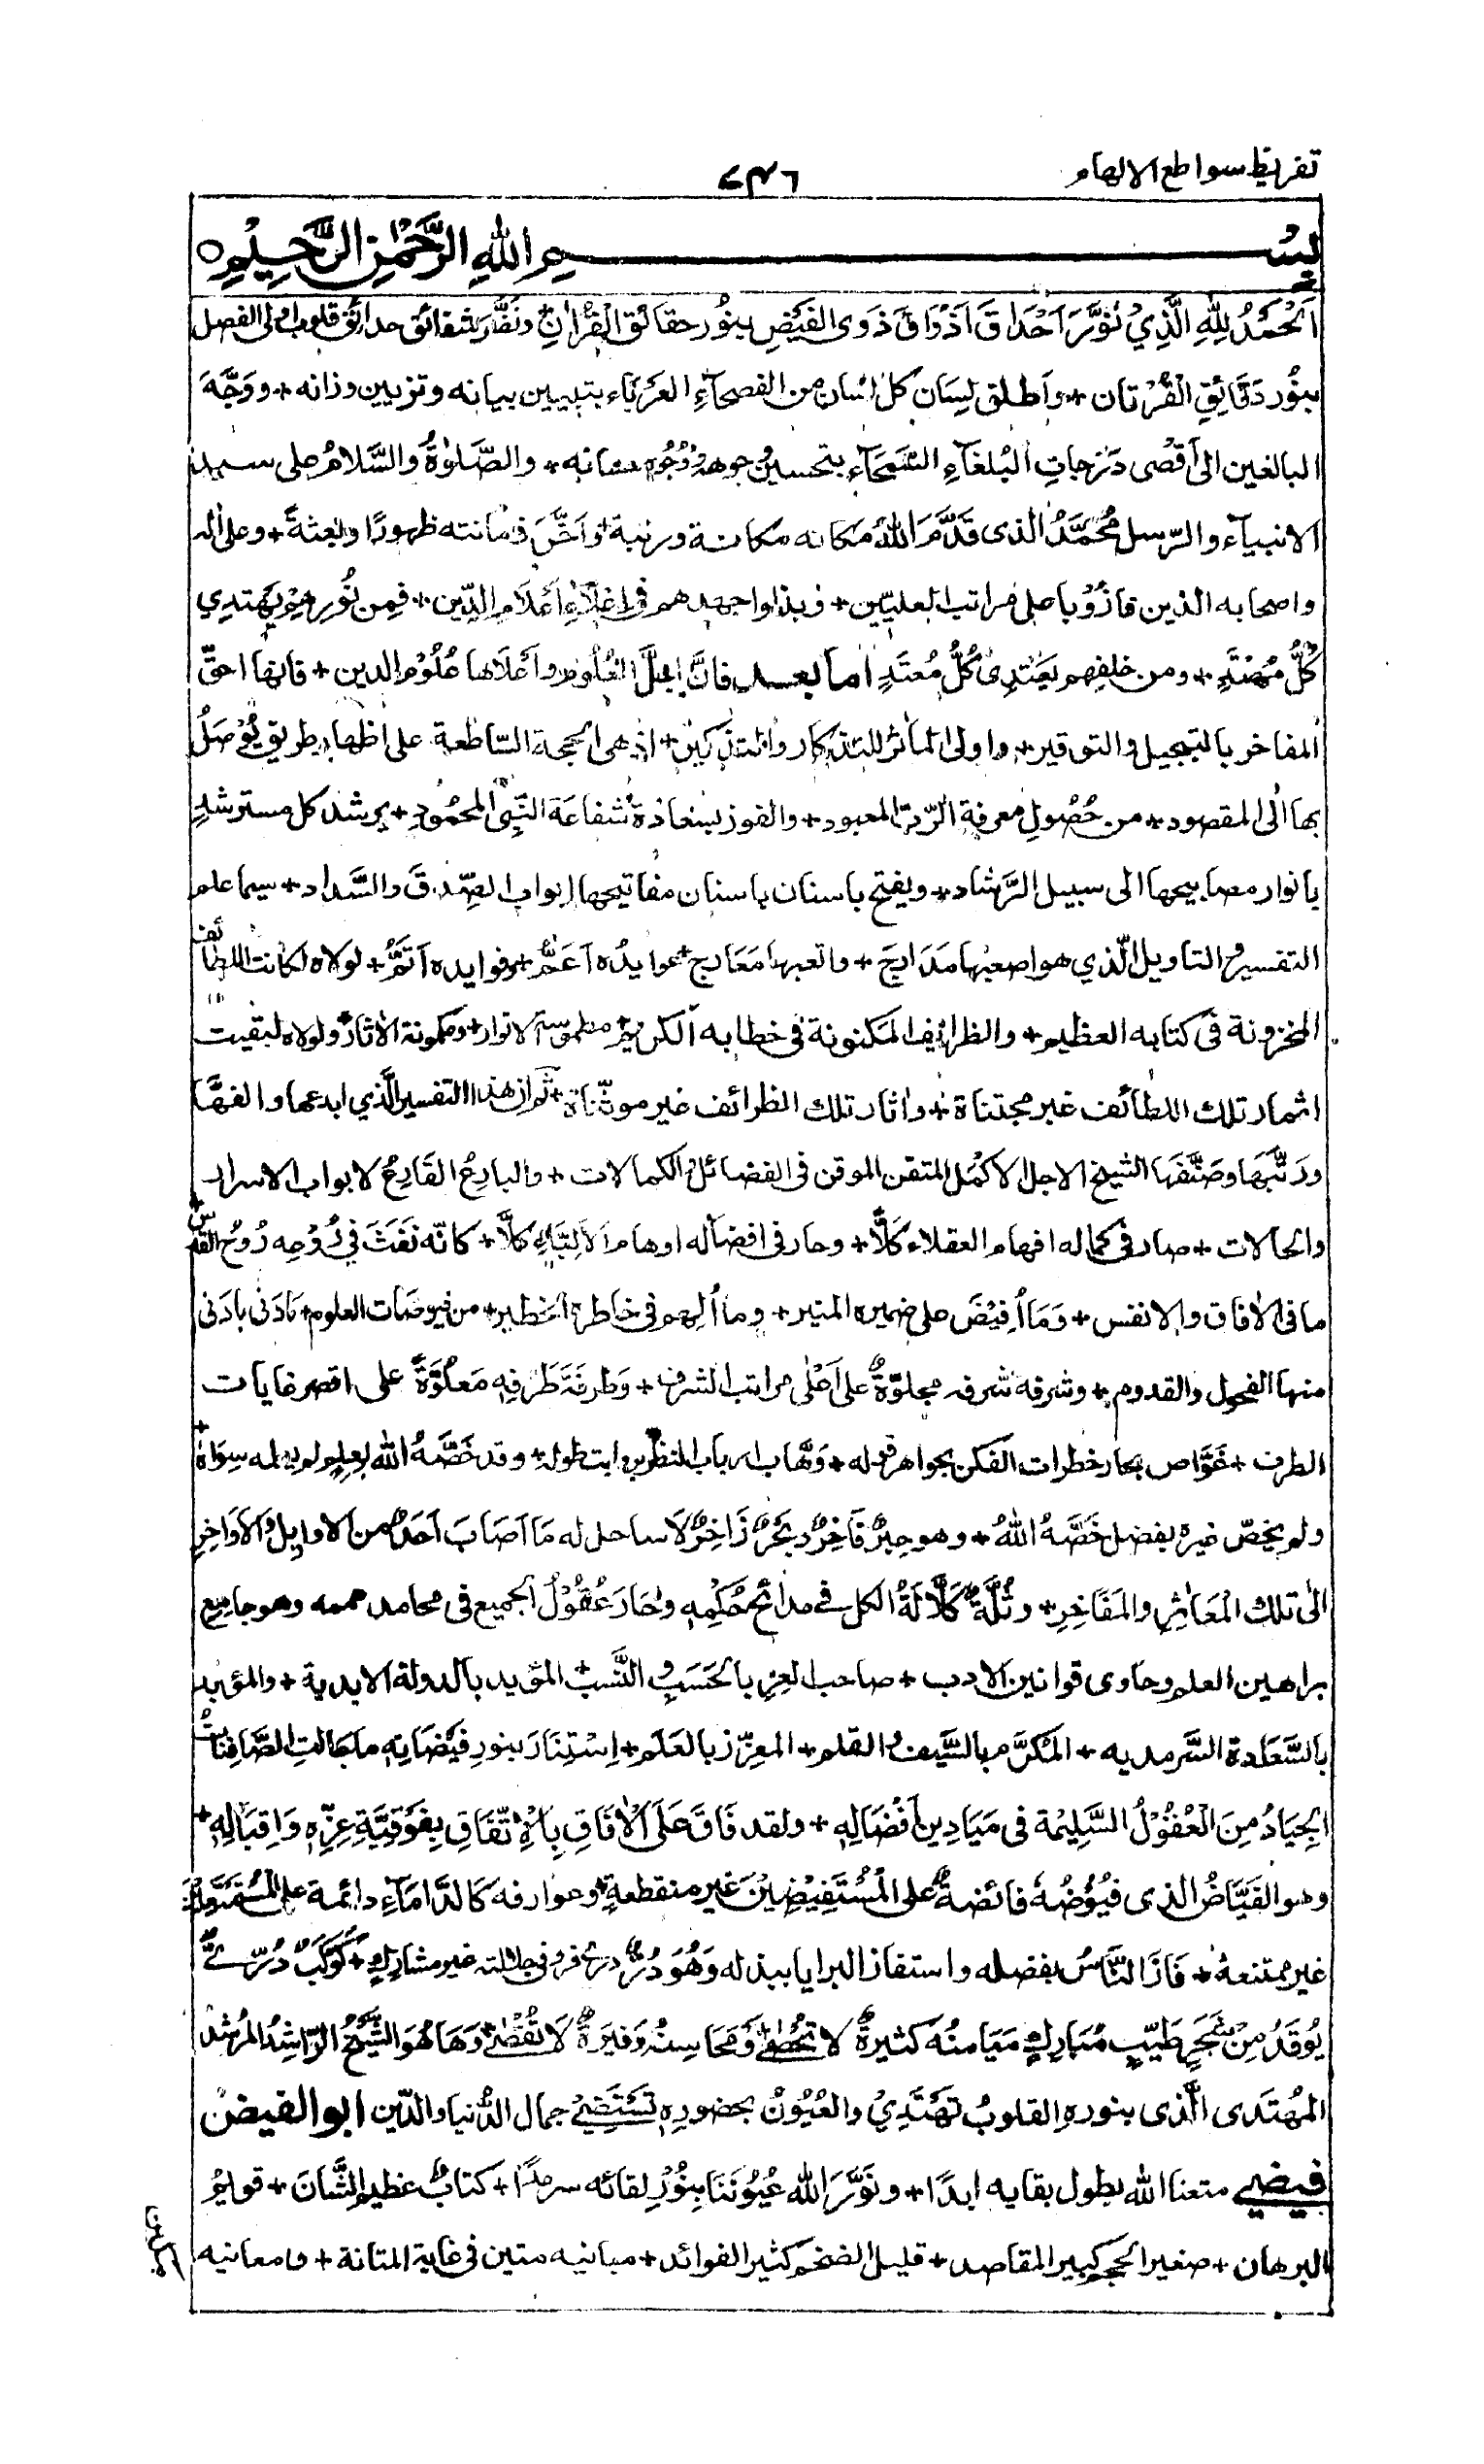 تقريظ سواطع الالهام
٧٤٦
بِسْمِ اللهِ الرَّحْمٰنِ الرَّحِيْمِ
اَلْحَمْدُ لِلّٰهِ الَّذِيْ نَوَّرَ اَحْدَاقَ اَذْوَاقِ ذَوِى الفَيْضِ بنُور حقائق القُرْاٰنِ + ونَضَّرَ شقائق حدائق قلوب اولى الفضل
بنُور دَقَائِقِ الْفُرْقان + واَطلق لِسَان كل انسان من الفصحآءِ العَرَبَاء بتبيين بيانه وتزيين وزانه + ووَجَّهَ
البالغين الى اَقْصٰى دَرَجاتِ البُلغَآءِ السَّمَحَآء بتحسين جوهر وُجُوه معانه + والصَّلوٰةُ والسَّلامُ على سيد
الانبيآء والرّسل مُحَمَّدٍ الذى قَدَّمَ اللهُ مَكانه مكانة ورتبة + واَخَّرَ زمانته ظهورًا وبعثةً + وعلى اٰله
واصحابه الذين فازُوْا باعلى مراتب العليّين + وبذلوا جهدهم فى اِعْلآءِ اَعْلَامِ الدِّين + فمِن نُورِهِم يَهتدي
كُلُّ مُهْتَدٍ + ومن خلفِهم يَعْتَدِىْ كُلُّ مُعتَدٍ اما بعد فانَّ اجلَّ العُلُومِ واَعْلَاها عُلُوْمُ الدين + فانها احقّ
المفاخر بالتبجيل والتوقير + واولى المآثر للتذكار والتذكير + اذ هى الحجة السَّاطعة على اظهار طريق يُوْصَلُ
بها الى المقصود + من حُصُولِ معرفة الرّبّ المعبود + والفوز بسعادة شفاعَة النَّبِيّ المحمُودِ + يرشد كل مسترشدٍ
بانوار مصابيحها الى سبيل الرَّشاد + ويفتح باسنان باسنان مفاتيحها ابواب الصِّدقَ والسَّداد + سيما علم
التفسير والتاويل الّذي هو اصعبُها مَدَارِجَ + واتعبها مَعَارج + عوايدُه اَعَمُّ + وفوايده اَتَمُّ + لولاه لكانت اللطائف
المخزونة فى كتابه العظيم + والظرائِف المَكنونة فى خطابه الكريم + مطموسة الانوار + ومكمونة الاٰثار + ولولاه لبقيت
اثمار تلك اللطائف غير مجتناة + واثار تلك الظرائف غير + ثم ان هذا التفسير الَّذي ابدعها والفهَّا
ورَتَّبَهَا وصَنَّفَهَا الشيخ الاجل الاكْمَل المتقن الموقن فى الفضائل والكمالات + والبارعُ القَارِعُ لابواب الاسرار
والحالات + صار فى كماله افهام العقلاء كَلًّا + وحار فى افضاله اوهام الاَلِبَّاءِ كلًّا + كانّه نَفَثَ فى رُوْعِه رُوحُ القدس
ما فى الاٰفاق والانفس + وَمَا اُفِيْضَ على ضميره المنير + وما اُلهم فى خاطره الخطير + من فيوضات العلوم + نَادٰى بادنٰى
منها الفحول والقدوم + وشرفه شرفه مجلوّةٌ على اَعْلٰى مراتب الشرف + وَطرفَة طَرَفِهٖ مَعلُوَّةٌ على اقصر غايات
الطرف + غَوَّاص بحار خطرات الفكر بجواهر قوله + وَهَّاب ارباب النظر طوله + وقد خَصَّهُ الله بعلمٍ لم يعلمه سِوَاهُ +
ولم يخصّ غيره بفضل خَصَّهُ اللهُ + وهو حبرٌ فَاخِرٌ وبَحْرٌ زَاخِرٌ لَا ساحل له مَا اَصَابَ اَحَدٌ من الاوايل وَالْاَوَاخِرِ
الٰى تلك المَعَاشِرِ والمَفَاخِرِ + الكل فى مدائح حِكَمِهٖ وحَارَ عُقُوْلُ الجميع فى محامد هممه وهو جامِع
براهين العلم وحاوى قوانين الادب + صاحب العِز بالحَسَبِ والنَّسَبِ المؤيد بالدولة الابدية + والمؤبد
بالسَّعَادة السَّرمديه + المكرَّم بالسَّيف والقلم + المعزّز بالعَلَم + اِسْتِنَارَ بنورِ فَيْضَانِهٖ ما جالتِ الصَّافِنَاتُ
الجِيَادُ مِنَ الْعُقُوْلِ السَّلِيْمَة فى مَيَادِينِ اَفْضَالِهٖ + ولقد فَاقَ عَلَى الْاٰفَاقِ بِالْاِتِّفَاقِ بِفَوْقِيَّةِ عِزِّهٖ وَاِقبَالِهٖ +
وهو الفَيَّاضُ الذى فيُوْضُهٗ فائضةٌ على الْمُسْتَفِيْضِيْنَ غير منقطعةٍ + وعوارفه كَالدَّامَآءِ دائمة على
غير ممتنعةٍ + فَازَ النَّاسُ بفضله واستفاز البرايا ببذله وَهُوَ دُرٌّ فرد فى جلالته غير مشارِكٍ + كَوْكَبٌ دُرِّيٌّ
يُوقَدُ مِنْ شَجَرٍ طَيِّبٍ مُبَارِكٍ مَيَامنُهٗ كثيرةٌ لا تُحْصٰى + وَمَحَاسِنُهٗ وَفيرَةٌ لَا تُقْصٰى + وَهَا هُوَ الشَّيْخُ الرَّاشِدُ المُرشد
المُهْتَدى الَّذى بنوره القلوبُ تَهْتَدِيْ والعُيُوْنُ بحضورِهٖ تَسْتَضِيْ جمال الدُّنيا والدّين ابو الفيض
فيضى متعنا الله بطول بقايه ابدًا + ونَوَّرَ الله عُيُوْنَنَا بِنُوْرِ لقائه سرمدًا + كتابٌ عظيم الشَّان + قويمُ
البرهان + صغير الحجم كبير المقاصد + قليل الضخم كثير الفوائد + مبانيه متين فى غاية المتانة + ومعانيه